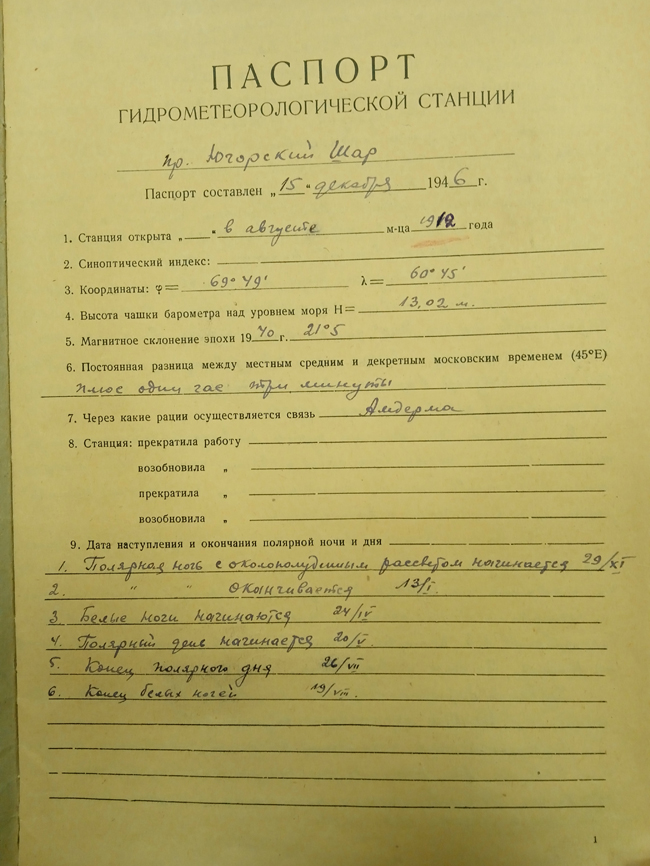 ПАСПОРТ
ГИДРОМЕТЕОРОЛОГИЧЕСКОЙ СТАНЦИИ
пр. Югорский Шар
Паспорт составлен „15“ декабря 1946 г.
1. Станция открыта „ “ в августе м-ца 1912 года
2. Синоптический индекс:
3. Координаты: φ= 69° 49' λ= 60° 45'
4. Высота чашки барометра над уровнем моря H= 13,02 м.
5. Магнитное склонение эпохи 1940 г. 21°5
6. Постоянная разница между местным средним и декретным московским временем (45°E)
плюс один час три минуты
7. Через какие рации осуществляется связь Амдерма
8. Станция: прекратила работу
возобновила „
прекратила „
возобновила „
9. Дата наступления и окончания полярной ночи и дня
1. Полярная ночь с околополуденным рассветом начинается 29/XI
2. „ „ оканчивается 13/I.
3 Белые ночи начинаются 24/IV
4. Полярный день начинается 20/V
5. Конец полярного дня 26/VII
6. Конец белых ночей 19/VIII.
1